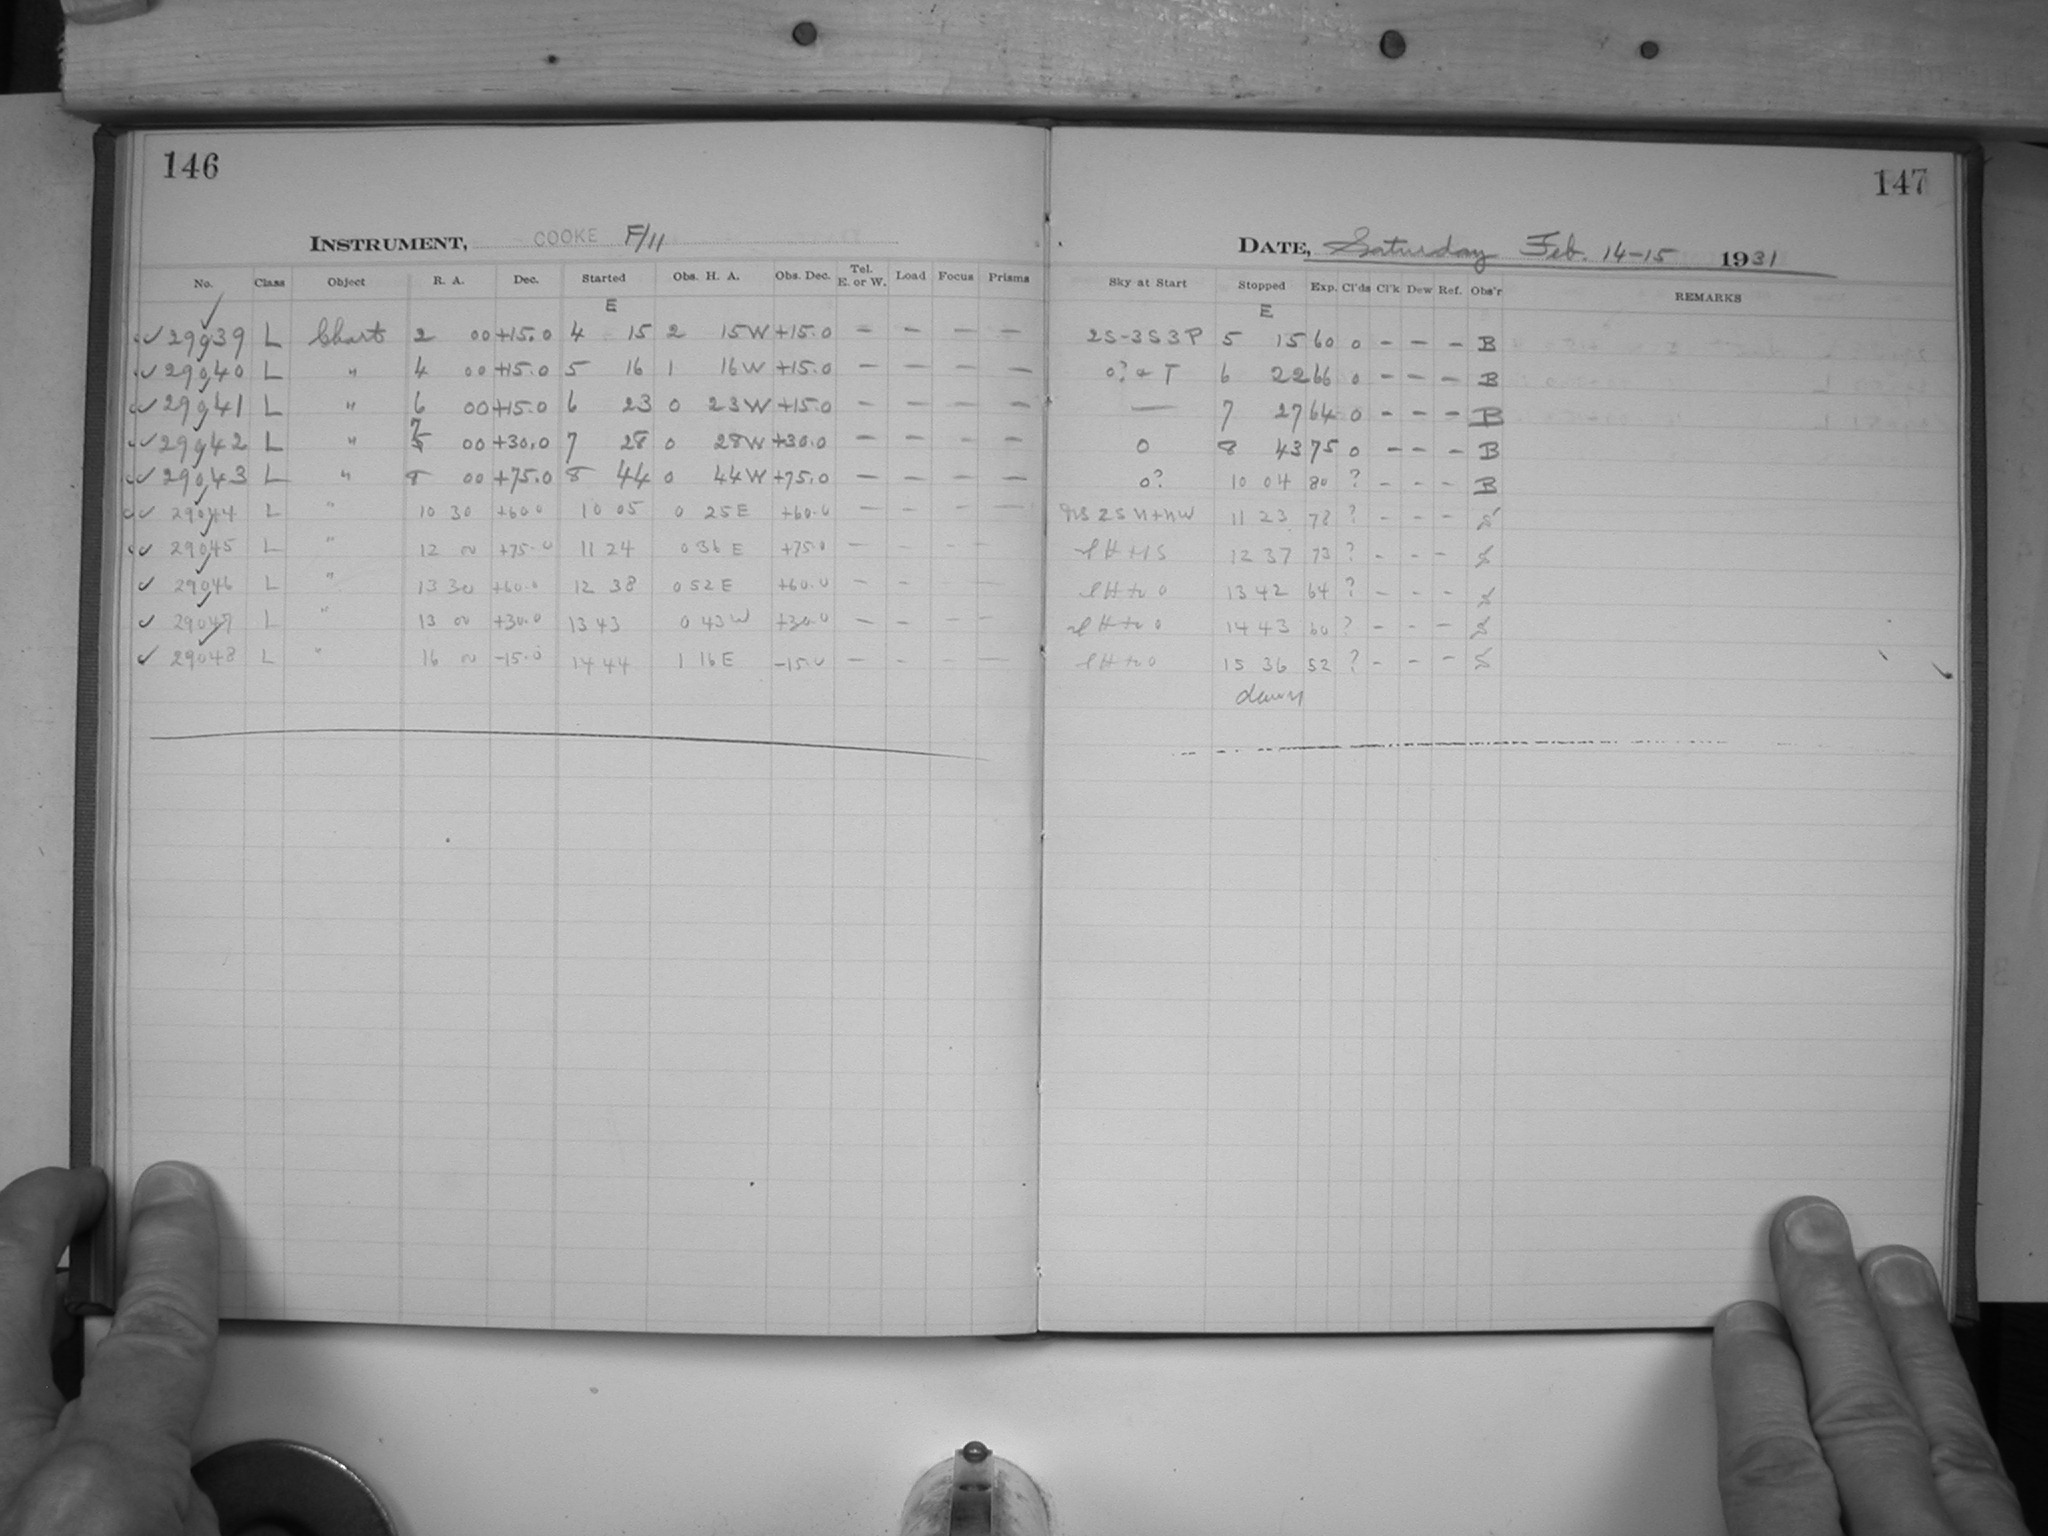 146
INSTRUMENT, COOKE F/11
No. Class Object R. A. Dec. Started Obs. H. A. Obs. Dec. Tel. E. or W. Load Focus Prisms
E
✓ 29039 L Chart 2 00 +15.0 4 15 2 15W +15.0 — — — —
✓ 29040 L " 4 00 +15.0 5 16 1 16W +15.0 — — — —
✓ 29041 L " 6 00 +15.0 6 23 0 23W +15.0 — — — —
✓ 29042 L " 7 00 +30.0 7 28 0 28W +30.0 — — — —
✓ 29043 L " 8 00 +75.0 8 44 0 44W +75.0 — — — —
✓ 29044 L " 10 30 +60.0 10 05 0 25E +60.0 — — — —
✓ 29045 L " 12 00 +75.0 11 24 0 36E +75.0 — — — —
✓ 29046 L " 13 30 +60.0 12 38 0 52E +60.0 — — —
✓ 29047 L " 13 00 +30.0 13 43 0 43W +30.0 — — — —
✓ 29048 L " 16 00 -15.0 14 44 1 16E -15.0 — — — —
147
DATE, Saturday Feb. 14-15 1931
Sky at Start Stopped Exp. Cl'ds Cl'k Dew Ref. Obs'r REMARKS
E
2S-3S3P 5 15 60 0 - - - B
0? & T 6 22 66 0 - - - B
— 7 27 64 0 - - - B
0 8 43 75 0 - - - B
0? 10 04 80 ? - - - B
2S N+NW 11 23 78 ? - - -
12 37 73 ? - - -
13 42 64 ? - - -
14 43 60 ? - - -
15 36 52 ? - - -
dawn